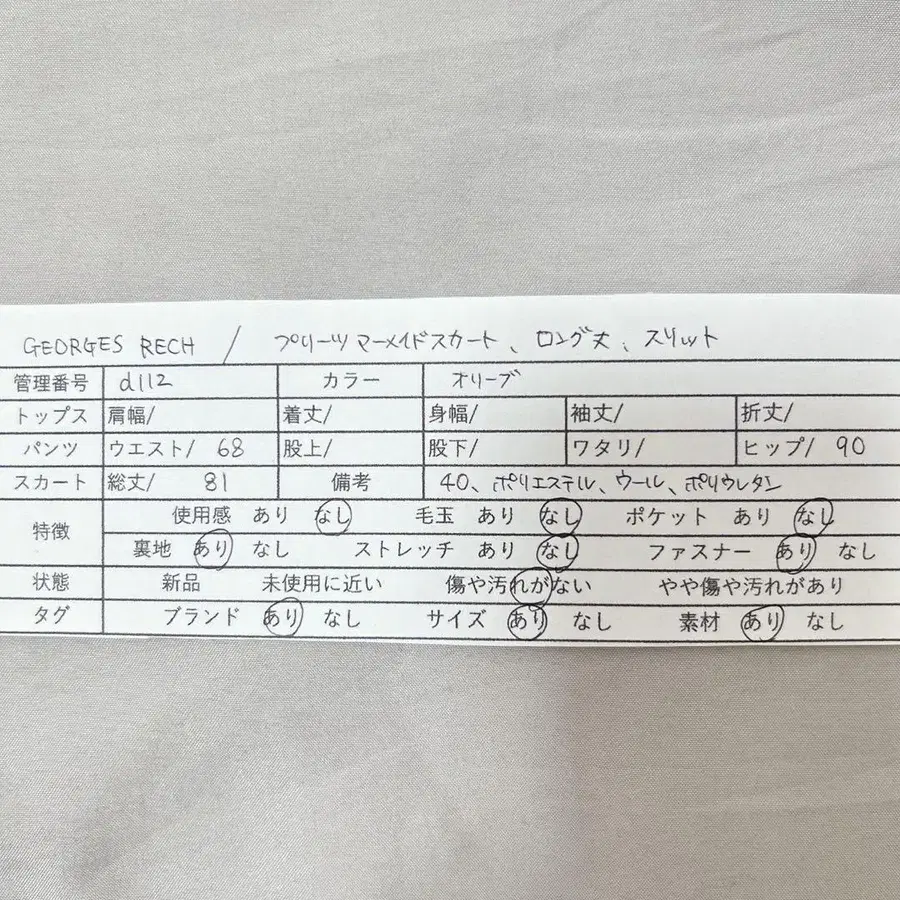 GEORGES RECH / プリーツマーメイドスカート、ロング丈、スリット
管理番号 d112 カラー オリーブ
トップス 肩幅/ 着丈/ 身幅/ 袖丈/ 裄丈/
パンツ ウエスト/ 68 股上/ 股下/ ワタリ/ ヒップ/ 90
スカート 総丈/ 81 備考 40、ポリエステル、ウール、ポリウレタン
特徴 使用感 あり なし 毛玉 あり なし ポケット あり なし
裏地 あり なし ストレッチ あり なし ファスナー あり なし
状態 新品 未使用に近い 傷や汚れがない やや傷や汚れがあり
タグ ブランド あり なし サイズ あり なし 素材 あり なし